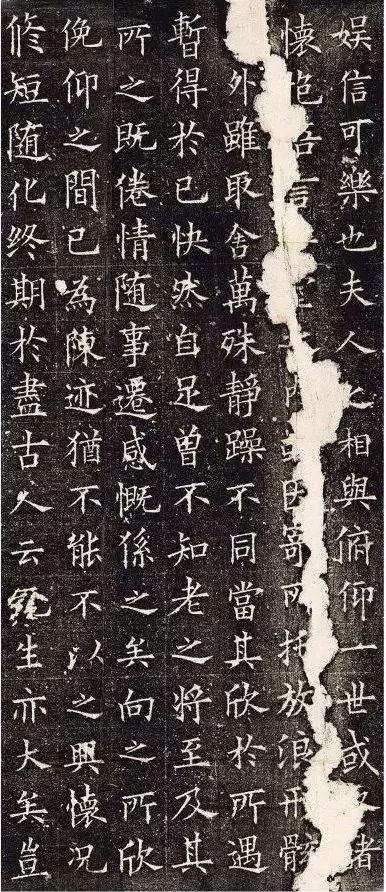 娱信可樂也夫人之相與俯仰一世或諸
懷抱悟言内或因寄所托放浪形骸
外雖取舍萬殊静躁不同當其欣於所遇
暫得於己快然自足曾不知老之將至及其
所之既倦情随事遷感慨係之矣向之所欣
俛仰之間已為陳迹猶不能不以之興懷況
修短随化终期於盡古人云生亦大矣豈